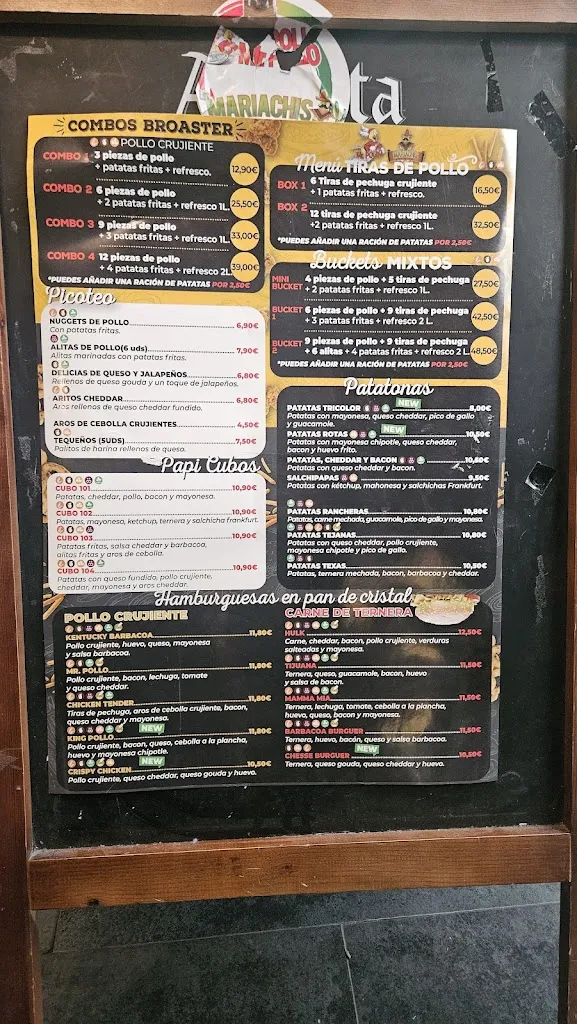 MARIACHIS
ta
COMBOS BROASTER
POLLO CRUJIENTE
COMBO 1 3 piezas de pollo
+ patatas fritas + refresco. 12,90€
COMBO 2 6 piezas de pollo
+ 2 patatas fritas + refresco 1L. 25,50€
COMBO 3 9 piezas de pollo
+ 3 patatas fritas + refresco 1L. 33,00€
COMBO 4 12 piezas de pollo
+ 4 patatas fritas + refresco 2L. 39,00€
*PUEDES AÑADIR UNA RACIÓN DE PATATAS POR 2,50€
Menú TIRAS DE POLLO
BOX 1 6 Tiras de pechuga crujiente
+ 1 patatas fritas + refresco. 16,50€
BOX 2
12 tiras de pechuga crujiente
+2 patatas fritas + refresco 1L. 32,50€
*PUEDES AÑADIR UNA RACIÓN DE PATATAS POR 2,50€
Buckets MIXTOS
MINI BUCKET 4 piezas de pollo + 5 tiras de pechuga
+ 2 patatas fritas + refresco 1L. 27,50€
BUCKET 1 6 piezas de pollo + 9 tiras de pechuga
+ 3 patatas fritas + refresco 2 L. 42,50€
BUCKET 2 9 piezas de pollo + 9 tiras de pechuga
+ 6 alitas + 4 patatas fritas + refresco 2 L. 48,50€
*PUEDES AÑADIR UNA RACIÓN DE PATATAS POR 2,50€
Picoteo
NUGGETS DE POLLO 6,90€
Con patatas fritas.
ALITAS DE POLLO(6 uds) 7,90€
Alitas marinadas con patatas fritas.
DELICIAS DE QUESO Y JALAPEÑOS 6,80€
Rellenos de queso gouda y un toque de jalapeños.
ARITOS CHEDDAR 6,80€
Aros rellenos de queso cheddar fundido.
AROS DE CEBOLLA CRUJIENTES 4,50€
TEQUEÑOS (5UDS) 7,50€
Palitos de harina rellenos de queso.
Papi Cubos
CUBO 101 10,90€
Patatas, cheddar, pollo, bacon y mayonesa.
CUBO 102 10,90€
Patatas, mayonesa, ketchup, ternera y salchicha frankfurt.
CUBO 103 10,90€
Patatas fritas, salsa cheddar y barbacoa,
alitas fritas y aros de cebolla.
CUBO 104 10,90€
Patatas con queso fundida, pollo crujiente,
cheddar, mayonesa y aros cheddar.
Patatonas
NEW
PATATAS TRICOLOR 8,00€
Patatas con mayonesa, queso cheddar, pico de gallo
y guacamole.
PATATAS ROTAS NEW 10,50€
Patatas con mayonesa chipotle, queso cheddar,
bacon y huevo frito.
PATATAS, CHEDDAR Y BACON 10,50€
Patatas con queso cheddar y bacon.
SALCHIPAPAS 9,50€
Patatas con kétchup, mahonesa y salchichas Frankfurt.
PATATAS RANCHERAS 10,80€
Patatas, carne mechada, guacamole, pico de gallo y mayonesa.
PATATAS TEJANAS 10,80€
Patatas con queso cheddar, pollo crujiente,
mayonesa chipotle y pico de gallo.
PATATAS TEXAS 10,50€
Patatas, ternera mechada, bacon, barbacoa y cheddar.
Hamburguesas en pan de cristal
POLLO CRUJIENTE
KENTUCKY BARBACOA 11,80€
Pollo crujiente, huevo, queso, mayonesa
y salsa barbacoa.
MR. POLLO 11,80€
Pollo crujiente, bacon, lechuga, tomate
y queso cheddar.
CHICKEN TENDER 11,80€
Tiras de pechuga, aros de cebolla crujiente, bacon,
queso cheddar y mayonesa.
KING POLLO NEW 11,80€
Pollo crujiente, bacon, queso, cebolla a la plancha,
huevo y mayonesa chipotle.
CRISPY CHICKEN NEW 10,50€
Pollo crujiente, queso cheddar, queso gouda y huevo.
CARNE DE TERNERA
HULK 12,50€
Carne, cheddar, bacon, pollo crujiente, verduras
salteadas y mayonesa.
TIJUANA 11,50€
Ternera, queso, guacamole, bacon, huevo
y salsa de bacon.
MAMMA MIA 11,50€
Ternera, lechuga, tomate, cebolla a la plancha,
huevo, queso, bacon y mayonesa.
BARBACOA BURGUER 11,50€
Ternera, huevo, bacon, queso y salsa barbacoa.
NEW
CHESSE BURGUER 10,50€
Ternera, queso gouda, queso cheddar y huevo.